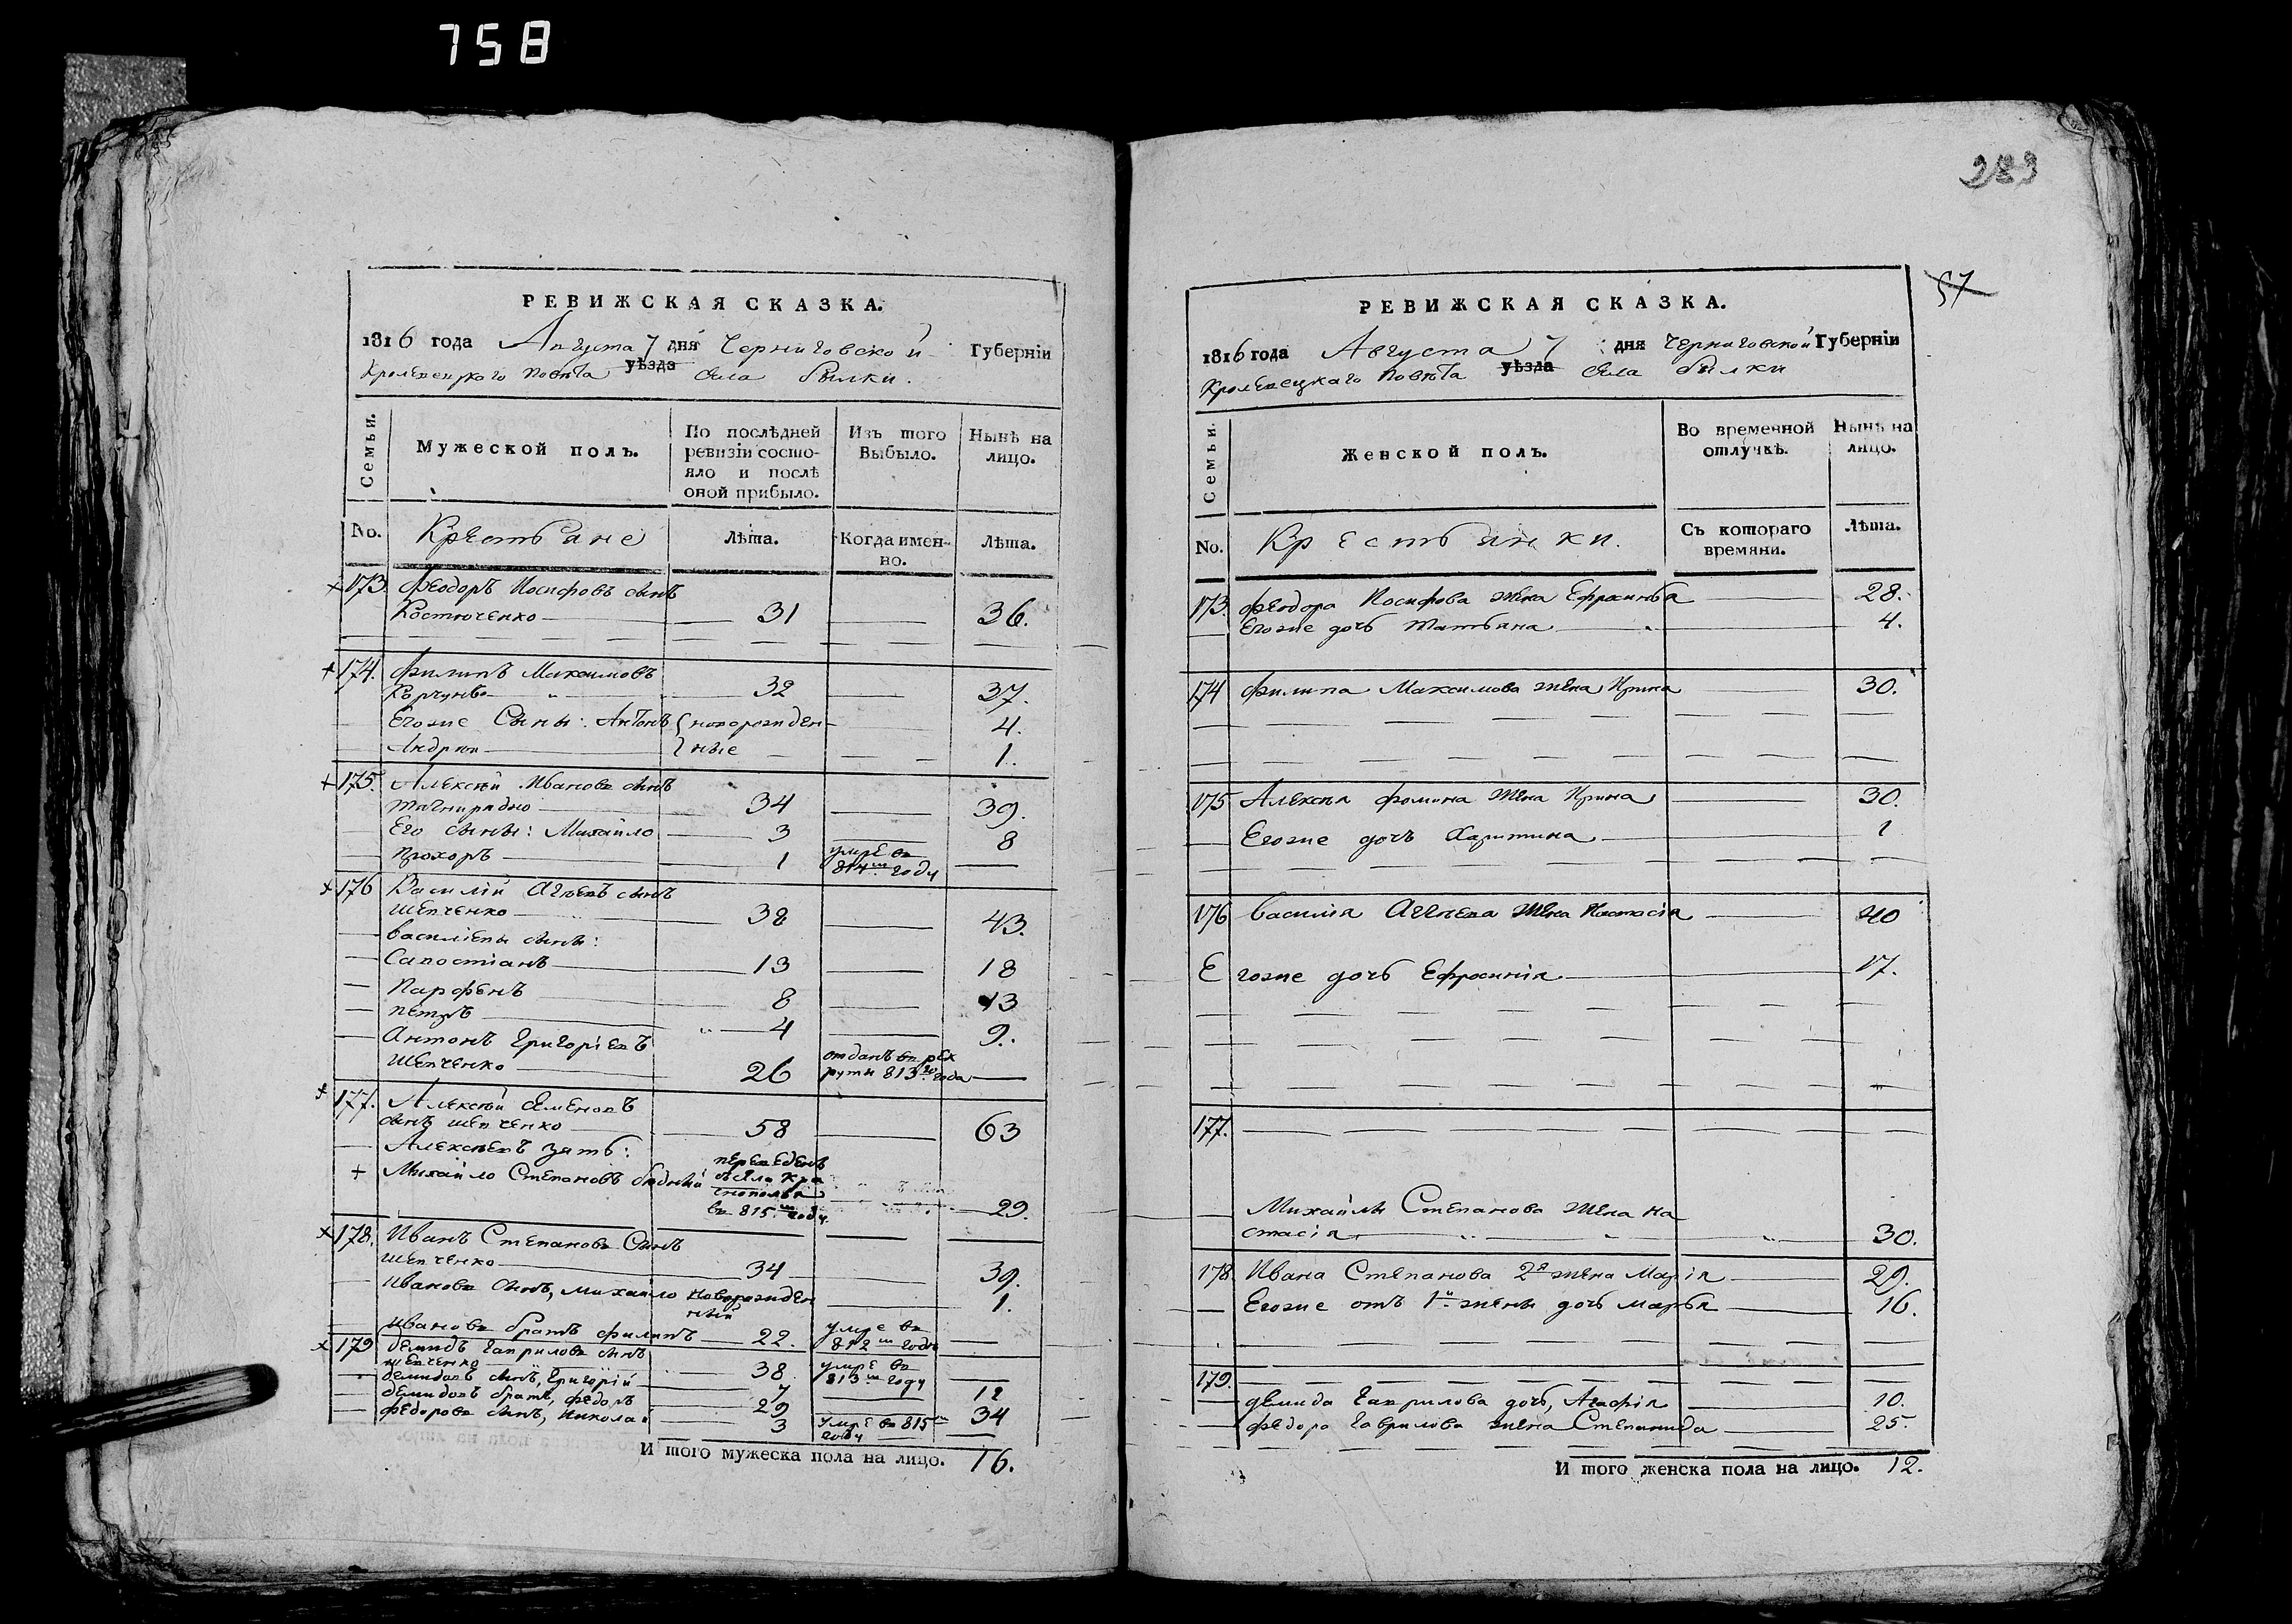 758
РЕВИЖСКАЯ СКАЗКА.
1816 года Августа 7 дня Черниговской Губерніи
Кролевецкого Повѣта уѣзда села Билки.
Семьи.
Мужеской полъ.
По послѣдней ревизіи состояло и послѣ оной прибыло.
Изъ того Выбыло.
Нынѣ на лицо.
No. Крестьяне Лѣта. Когда именно. Лѣта.
173. Феодоръ Иосифовъ сынъ
Костюченко 31 36.
174. Филипъ Максимовъ
32 37.
Егоже Сыны: Антонъ новорожден- 4.
Андрей ные 1.
175. Алексѣй Ивановъ сынъ
34 39.
Его сыны: Михайло 3 8
Прохоръ 1 умре в 814м году
176 Василій Агѣевъ сынъ
Шевченко 38 43.
Василіевы сыны:
Савостіанъ 13 18
Парфенъ 8 13
Петръ 4 9.
Антонъ Григоріевъ
Шевченко 26 отданъ в рекруты 813го года
177. Алексѣй Семеновъ
сынъ Шевченко 58 63
Алексѣевъ зять:
Михайло Степановъ бѣдный переведенъ в 815м году 29.
178. Иванъ Степановъ Сынъ
Шевченко 34 39.
Ивановъ сынъ, Михайло новорожденный 1.
Ивановъ братъ Филипъ 22. умре в 812м году
179 Демидъ Гавриловъ сынъ
Шевченко 38 умре в 813м году
Демидовъ сынъ, Григорій 7 12
Демидовъ братъ, Федоръ 29 34
Федоровъ сынъ, Николай 3 умре в 815м году
И того мужеска пола на лицо. 16.
283
57
РЕВИЖСКАЯ СКАЗКА.
1816 года Августа 7 дня Черниговской Губерніи
Кролевецкаго Повѣта уѣзда села Билки
Семьи.
Женской полъ.
Во временной отлучкѣ.
Нынѣ на лицо.
No. Крестьянки. Съ котораго времяни. Лѣта.
173. Феодора Иосифова жена Ефросинья 28.
Егоже дочь Татьяна 4.
174 Филипа Максимова жена Ирина 30.
175 Алексѣя Фомина жена Ирина 30.
Егоже дочь Харитина 1
176 Василія Агѣева жена Настасія 40
Егоже дочь Ефросинія 17.
177.
Михайлы Степанова жена На
стасія 30.
178. Ивана Степанова 2я жена Марія 29.
Егоже отъ 1й жены дочь Марья 16.
179.
Демида Гаврилова дочь, Агафія 10.
Федора Гаврилова жена Степанида 25.
И того женска пола на лицо. 12.